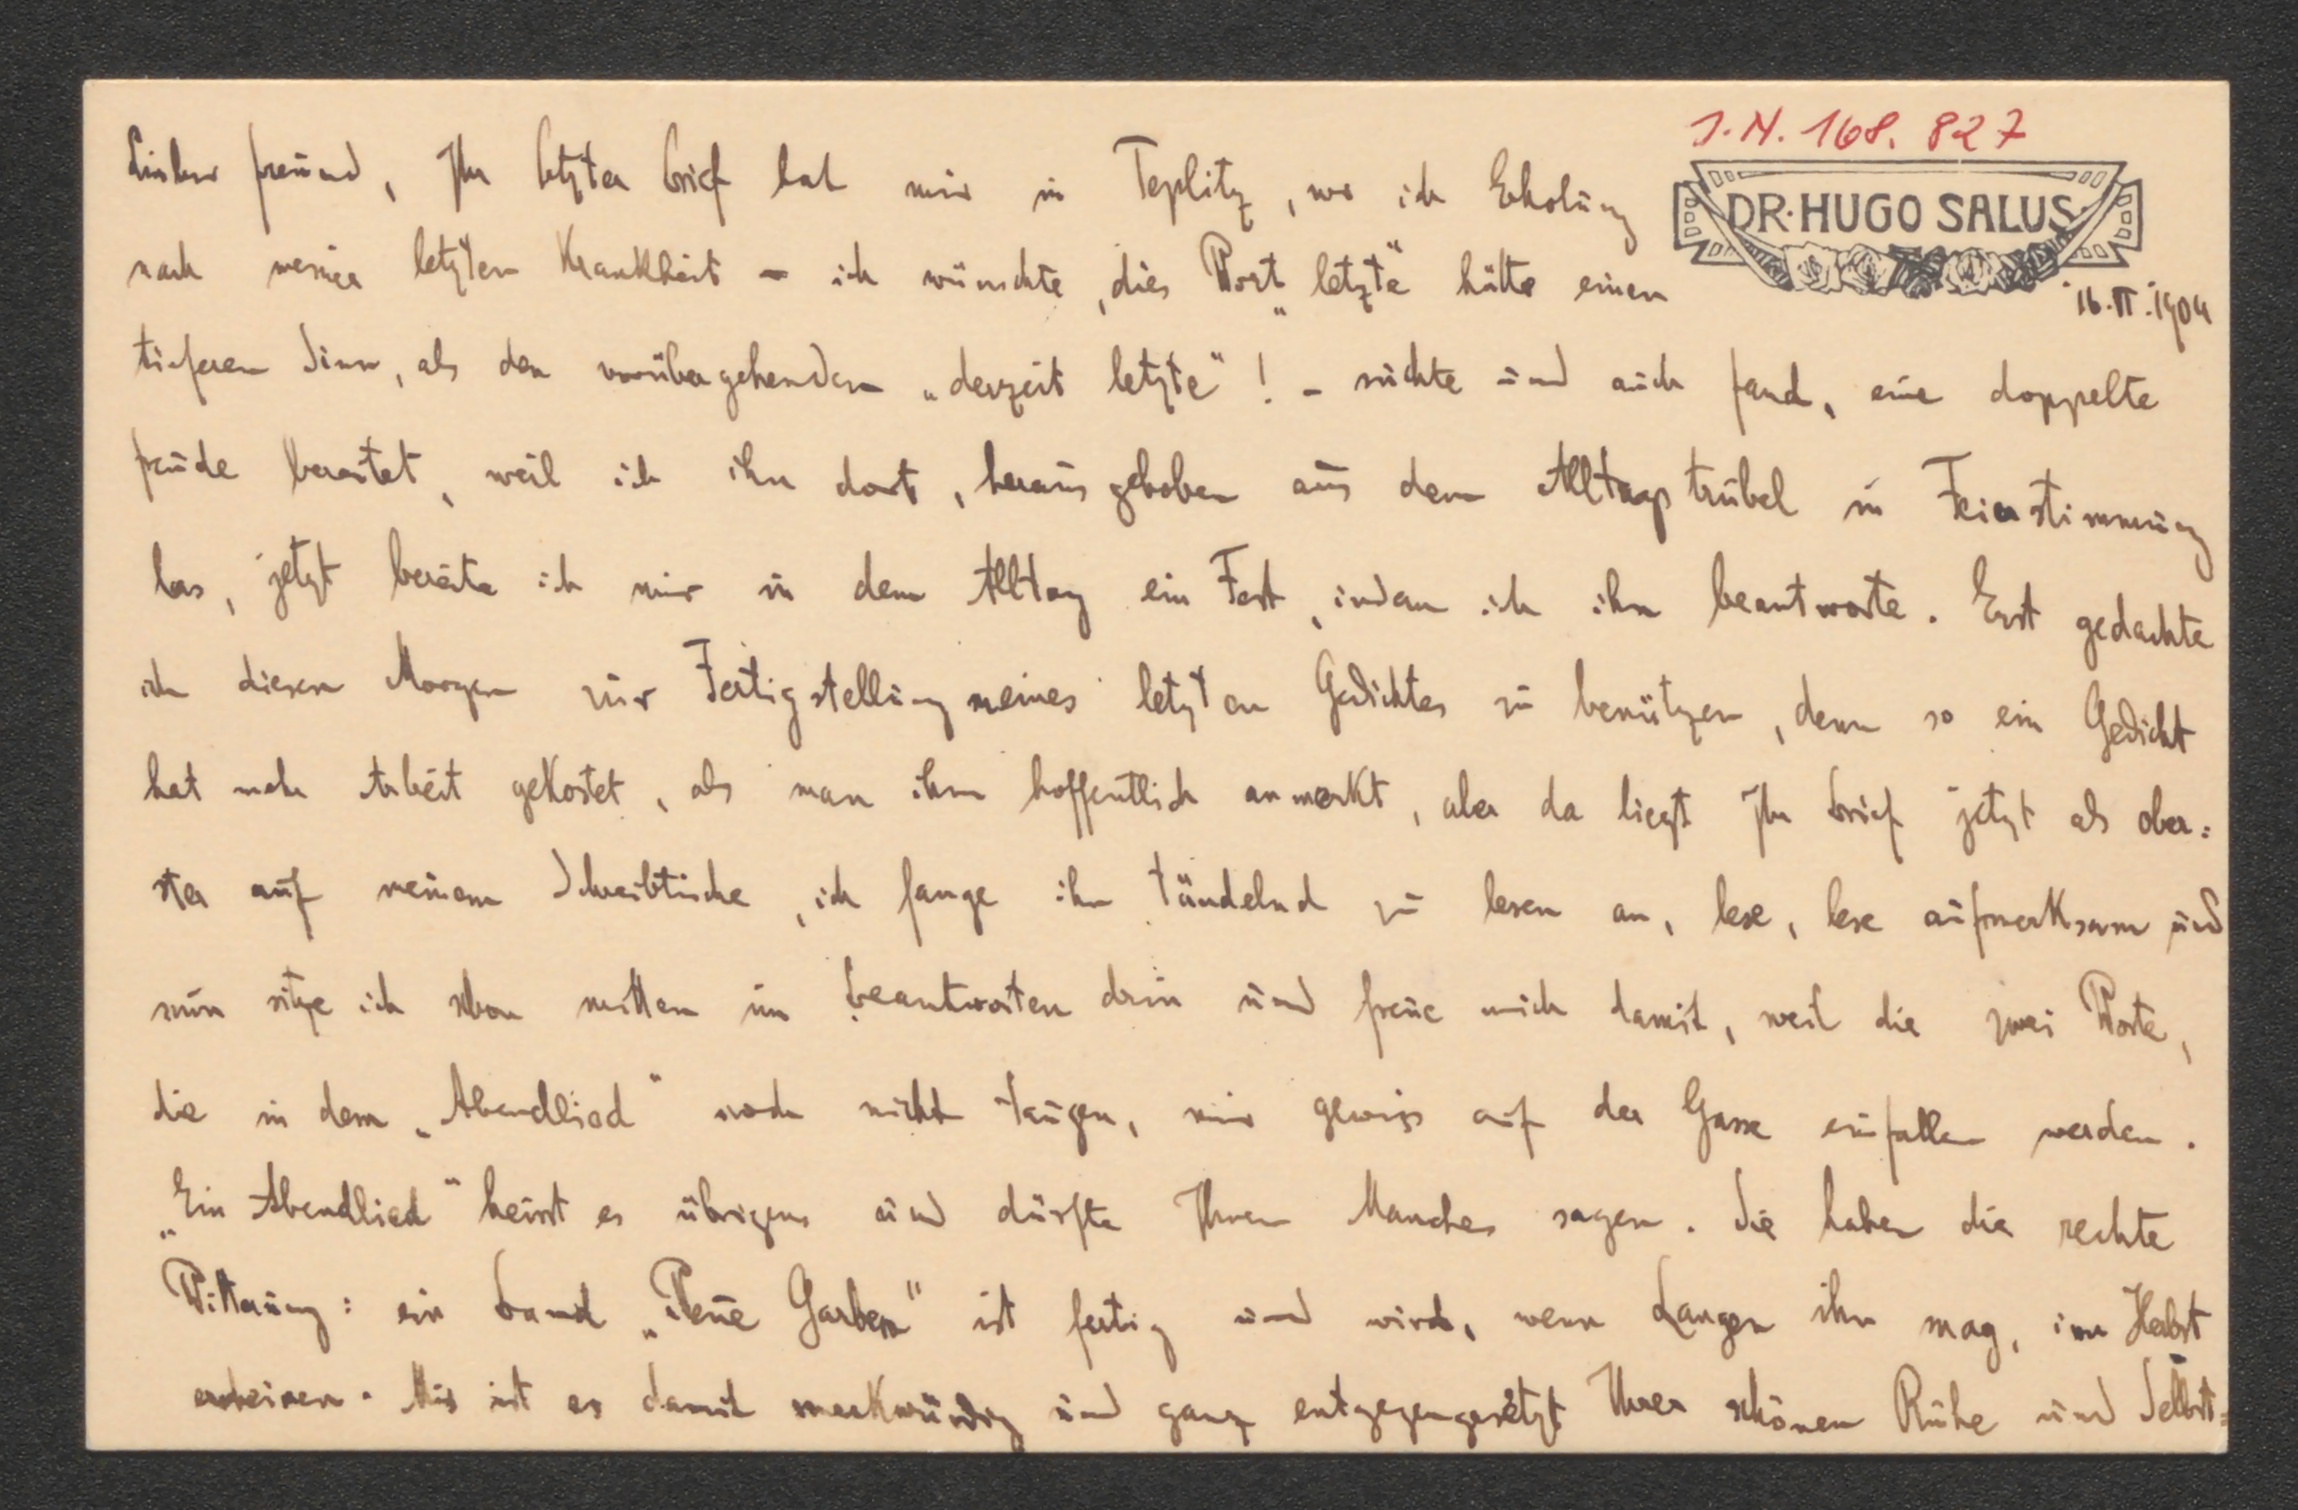 J.N. 168.827
DR. HUGO SALUS
16.II.1904
Lieber Freund, Ihr letzter Brief hat mir in Teplitz, wo ich Erholung
nach meiner letzten Krankheit – ich wünschte, dies Wort „letzte“ hätte einen
tieferen Sinn, als den vorübergehenden „derzeit letzte“! – suchte und auch fand, eine doppelte
Freude bereitet, weil ich ihn dort, herausgehoben aus dem Alltagstrubel in Feierstimmung
las, jetzt bereite ich mir in dem Alltag ein Fest, indem ich ihn beantworte. Erst gedachte
ich diesen Morgen zur Fertigstellung meines letzten Gedichtes zu benützen, denn so ein Gedicht
hat mehr Arbeit gekostet, als man ihm hoffentlich anmerkt, aber da liegt Ihr Brief jetzt als ober=
ster auf meinem Schreibtische, ich fange ihn tändelnd zu lesen an, lese, lese aufmerksam und
nun sitze ich schon mitten im Beantworten drin und freue mich damit, weil die zwei Worte,
die in dem „Abendlied“ noch nicht taugen, mir gewiss auf der Gasse einfallen werden.
„Ein Abendlied“ heisst es übrigens und dürfte Ihnen Manches sagen. Sie haben die rechte
Witterung: ein Band „Neue Garben“ ist fertig und wird, wenn Langen ihn mag, im Herbst
erscheinen. Mir ist es damit merkwürdig und ganz entgegengesetzt Ihrer schönen Ruhe und Selbst=